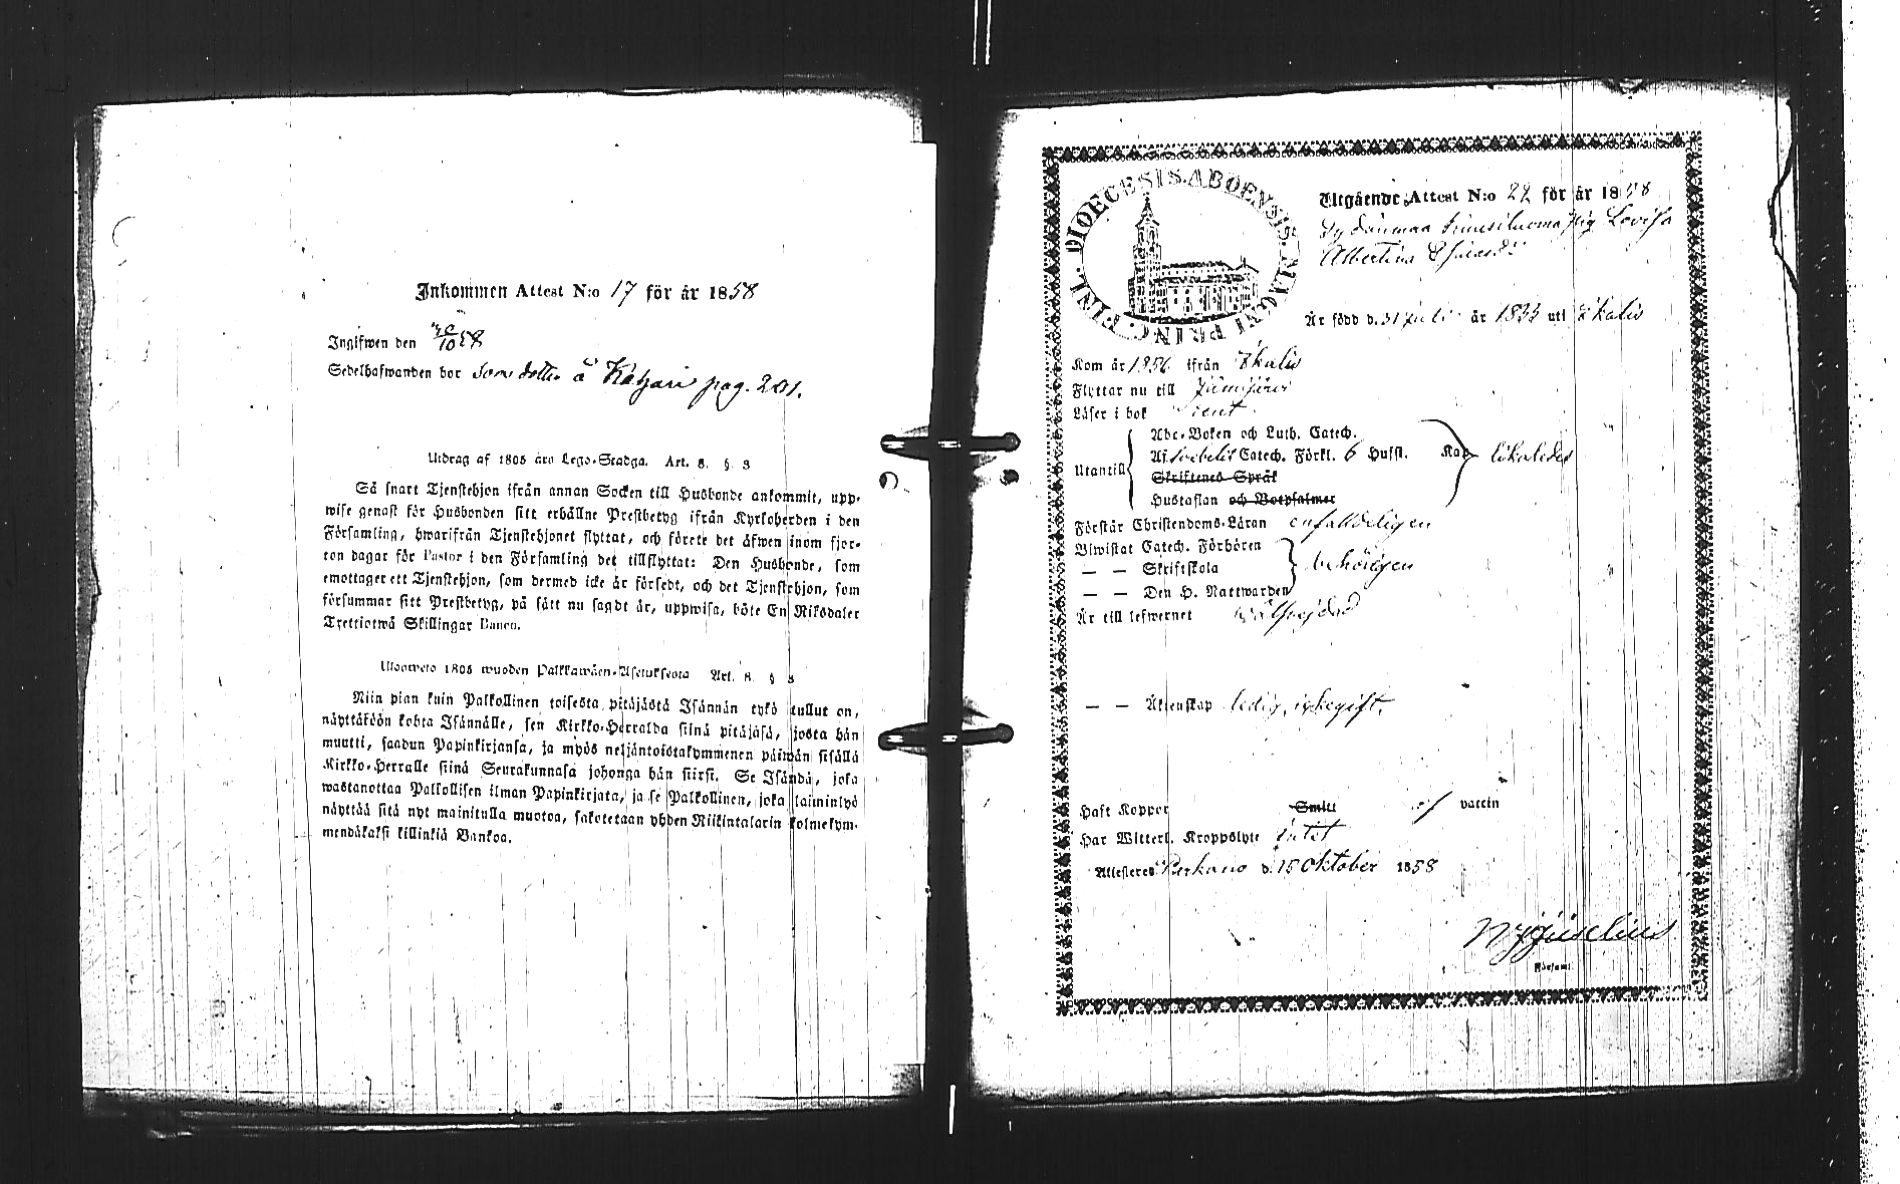 Inkommen Attest N:o 17 för år 1858
Ingifwen den 30/10 58
Sedelhafwanden bor som dotter å Katzari pag. 201.
Utdrag af 1805 års Lego-Stadga. Art. 8. § 3
Så snart Tjenstehjon ifrån annan Socken till Husbonde ankommit, upp-
wise genast för Husbonden sitt erhållne Prestbetyg ifrån Kyrkoherden i den
Församling, hwarifrån Tjenstehjonet flyttat, och förete det äfwen inom fjor-
ton dagar för Pastor i den Församling det tillflyttat: Den Husbonde, som
emottager ett Tjenstehjon, som dermed icke är försedt, och det Tjenstehjon, som
försummar sitt Prestbetyg, på sätt nu sagdt är, uppwisa, böte En Riksdaler
Trettiotwå Skillingar Banco.
Ulosweto 1805 wuoden Palkkawäen-Asetuksesta Art. 8. § 3
Niin pian kuin Palkollinen toisesta pitäjästä Isännän tykö tullut on,
näyttäköön kohta Isännälle, sen Kirkko-Herralda siinä pitäjäsä, josta hän
muutti, saadun Papinkirjansa, ja myös neljäntoistakymmenen päiwän sisällä
Kirkko-Herralle siinä Seurakunnasa johonga hän siirsi. Se Isändä, joka
wastanottaa Palkollisen ilman Papinkirjata, ja se Palkollinen, joka laiminlyö
näyttää sitä nyt mainitulla muotoa, sakotetaan yhden Riikintalarin kolmekym-
mendäkaksi killinkiä Bankoa.
DIOECESIS ABOENSIS MAGNI PRINC. FINL.
Utgående Attest N:o 22 för år 1858
Lovisa
Albertina
Är född d. 31 juli år 1833 uti Ikalis
Kom år 1856 ifrån Ikalis
Flyttar nu till Jämijärvi
Läser i bok rent
Abc-Boken och Luth. Catech.
Af Svebelii Catech. Förkl. 6 Hufst. Kan likaledes
Utantill
Skriftenes Språk
Hustaflan och Botpsalmer
Förstår Christendoms-Läran enfalldeligen
Biwistat Catech. Förhören
— — Skriftskola behörigen
— — Den H. Nattwarden
Är till lefwernet wälfrejdad
— — Äktenskap ledig, ickegift.
Haft Koppor Smitt vaccin
Har Witterl. Kroppslyte intet
Attesteres Parkano d. 15 Oktober 1858